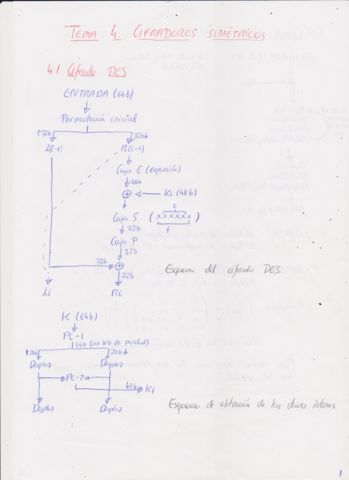 TEMA 4. CIFRADORES SIMÉTRICOS
4.1 Cifrado DES
ENTRADA (64b)
Permutación inicial
32b 32b
L(i-1) R(i-1)
Caja E (expansión)
48b
⊕ Ki (48b)
c
Caja S (xxxxxx)
f
32b
Caja P
32b
32b ⊕
32b
Li Ri
Esquema del cifrado DES
K (64b)
PC-1
56b (sin bits de paridad)
28b 28b
Desplaz Desplaz
PC-2
48b K1
Desplaz Desplaz
Esquema de obtención de las claves internas
1